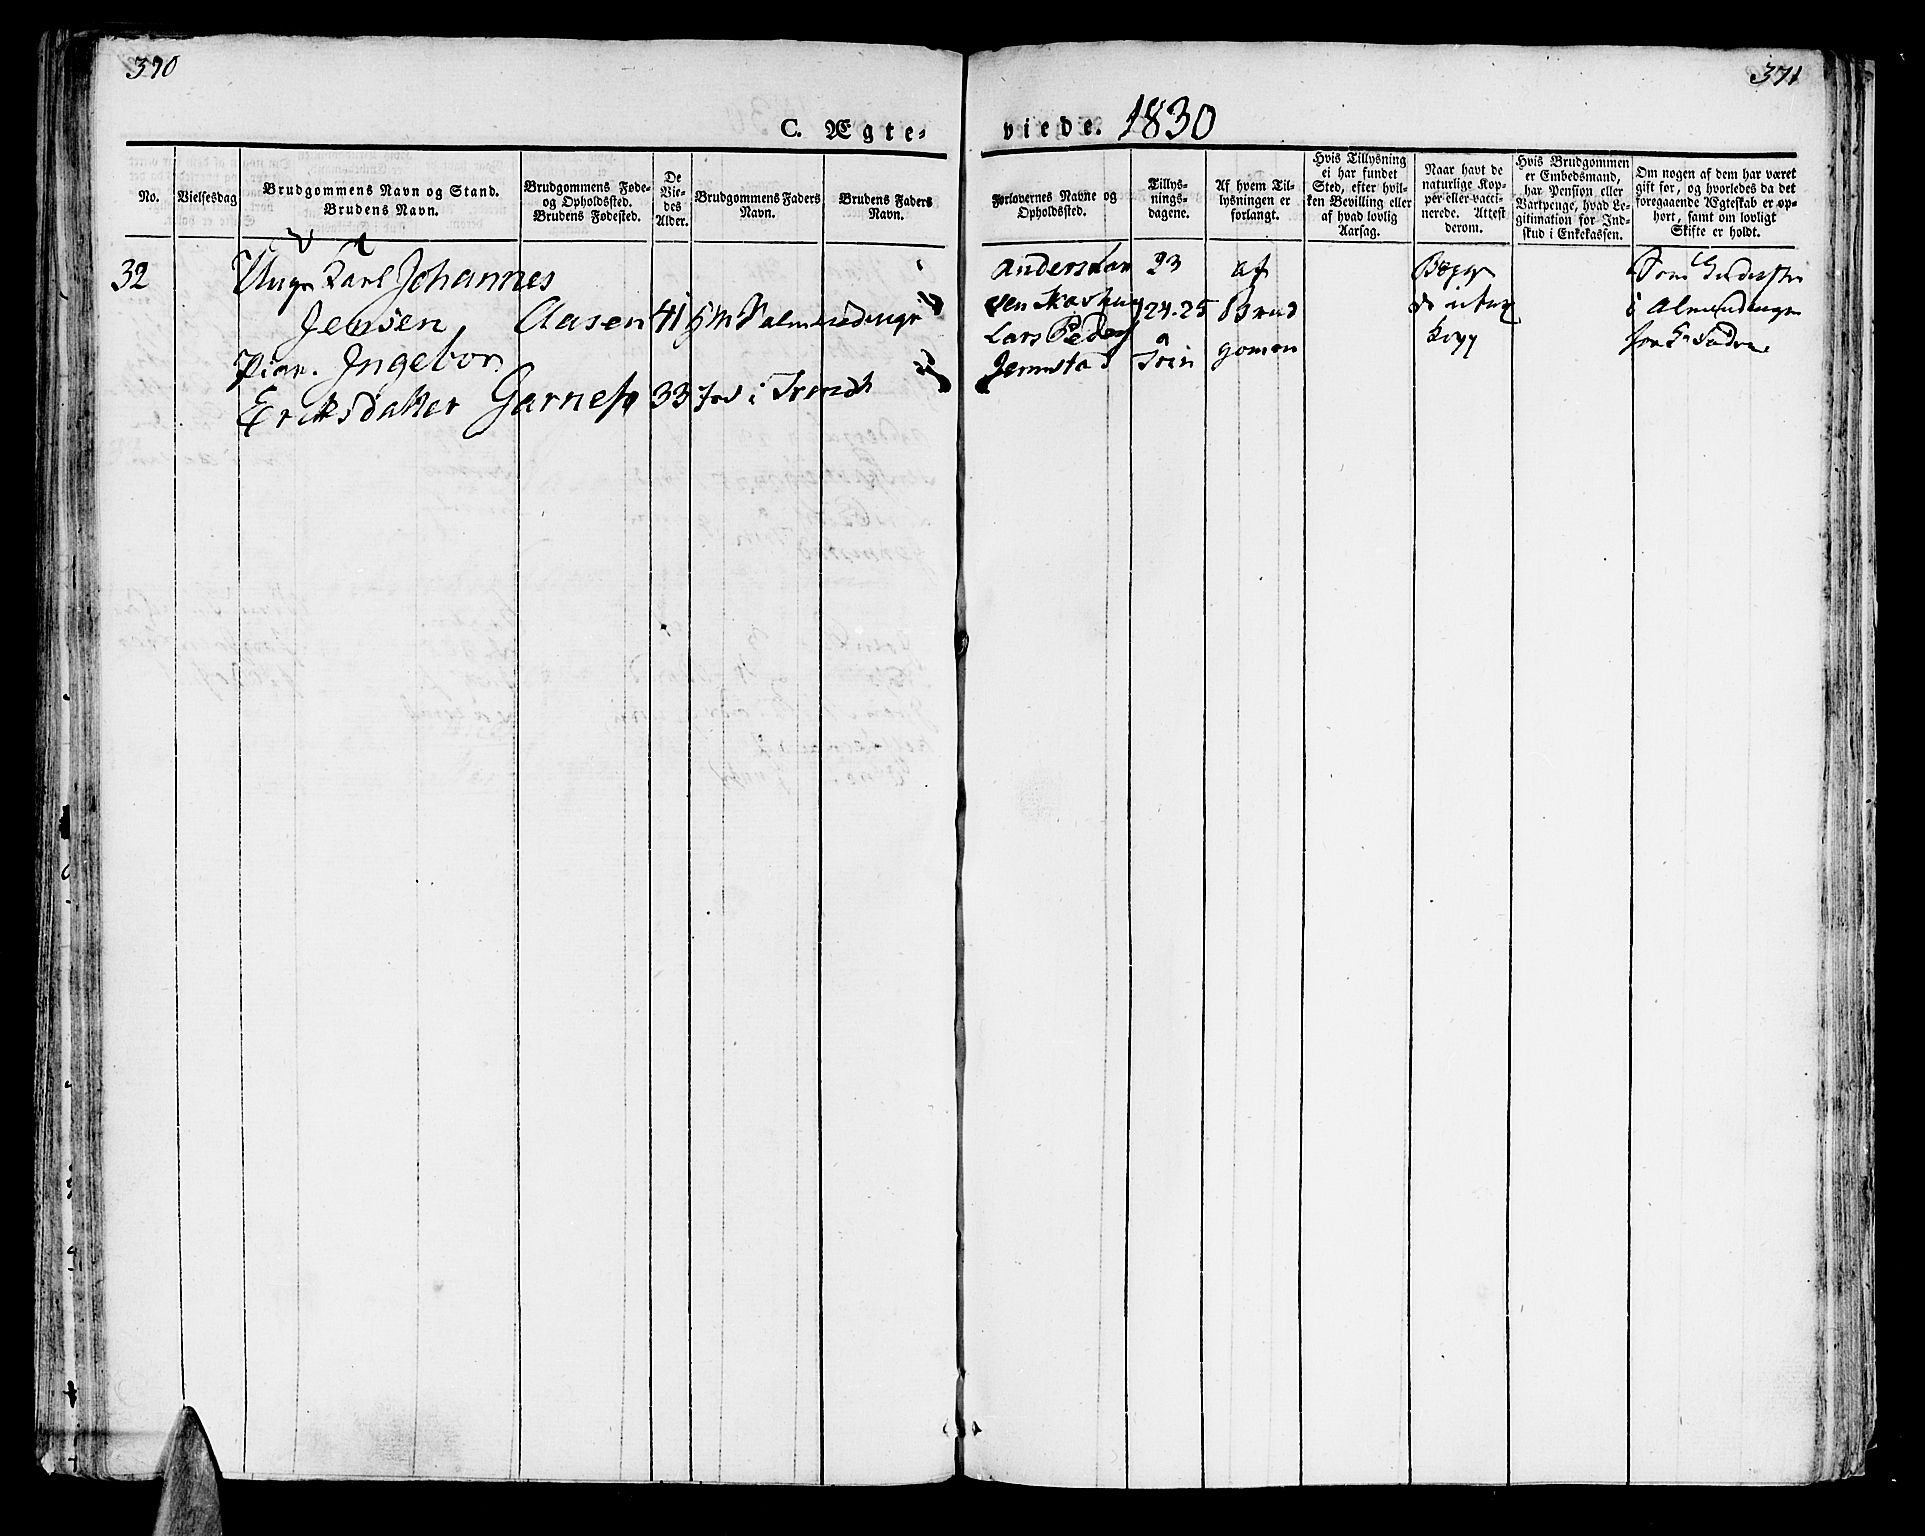 370
371
C. Ægte-
viede. 1830
No.
Vielsesdag
Brudgommens Navn og Stand.
Brudens Navn.
Brudgommens Føde-
og Opholdssted.
Brudens Fødested.
De
Vie-
des
Alder.
Brudgommens Faders
Navn.
Brudens Faders
Navn.
Forlovernes Navne og
Opholdssted.
Tillys-
nings-
dagene.
Af hvem Til-
lysningen er
forlangt.
Hvis Tillysning
ei har fundet
Sted, efter hvil-
ken Bevilling eller
af hvad lovlig
Aarsag.
Naar havt de
naturlige Kop-
per eller vacci-
nerede. Attest
derom.
Hvis Brudgommen
er Embedsmand,
har Pension eller
Vartpenge, hvad Le-
gitimation for Ind-
skud i Enkekassen.
Om nogen af dem har været
gift før, og hvorledes da det
foregaaende Ægteskab er op-
hørt, samt om lovligt
Skifte er holdt.
32 Ungs Karl Johannes
Jensen, Aasen 41
Pian. Ingebor
Eriksdatter Garnes 33 i Trondh
Anders Lar 23 af
sen 24-25 Brud
Lars Peders a gomen
Jermstad Trin
Begge
i Almindings